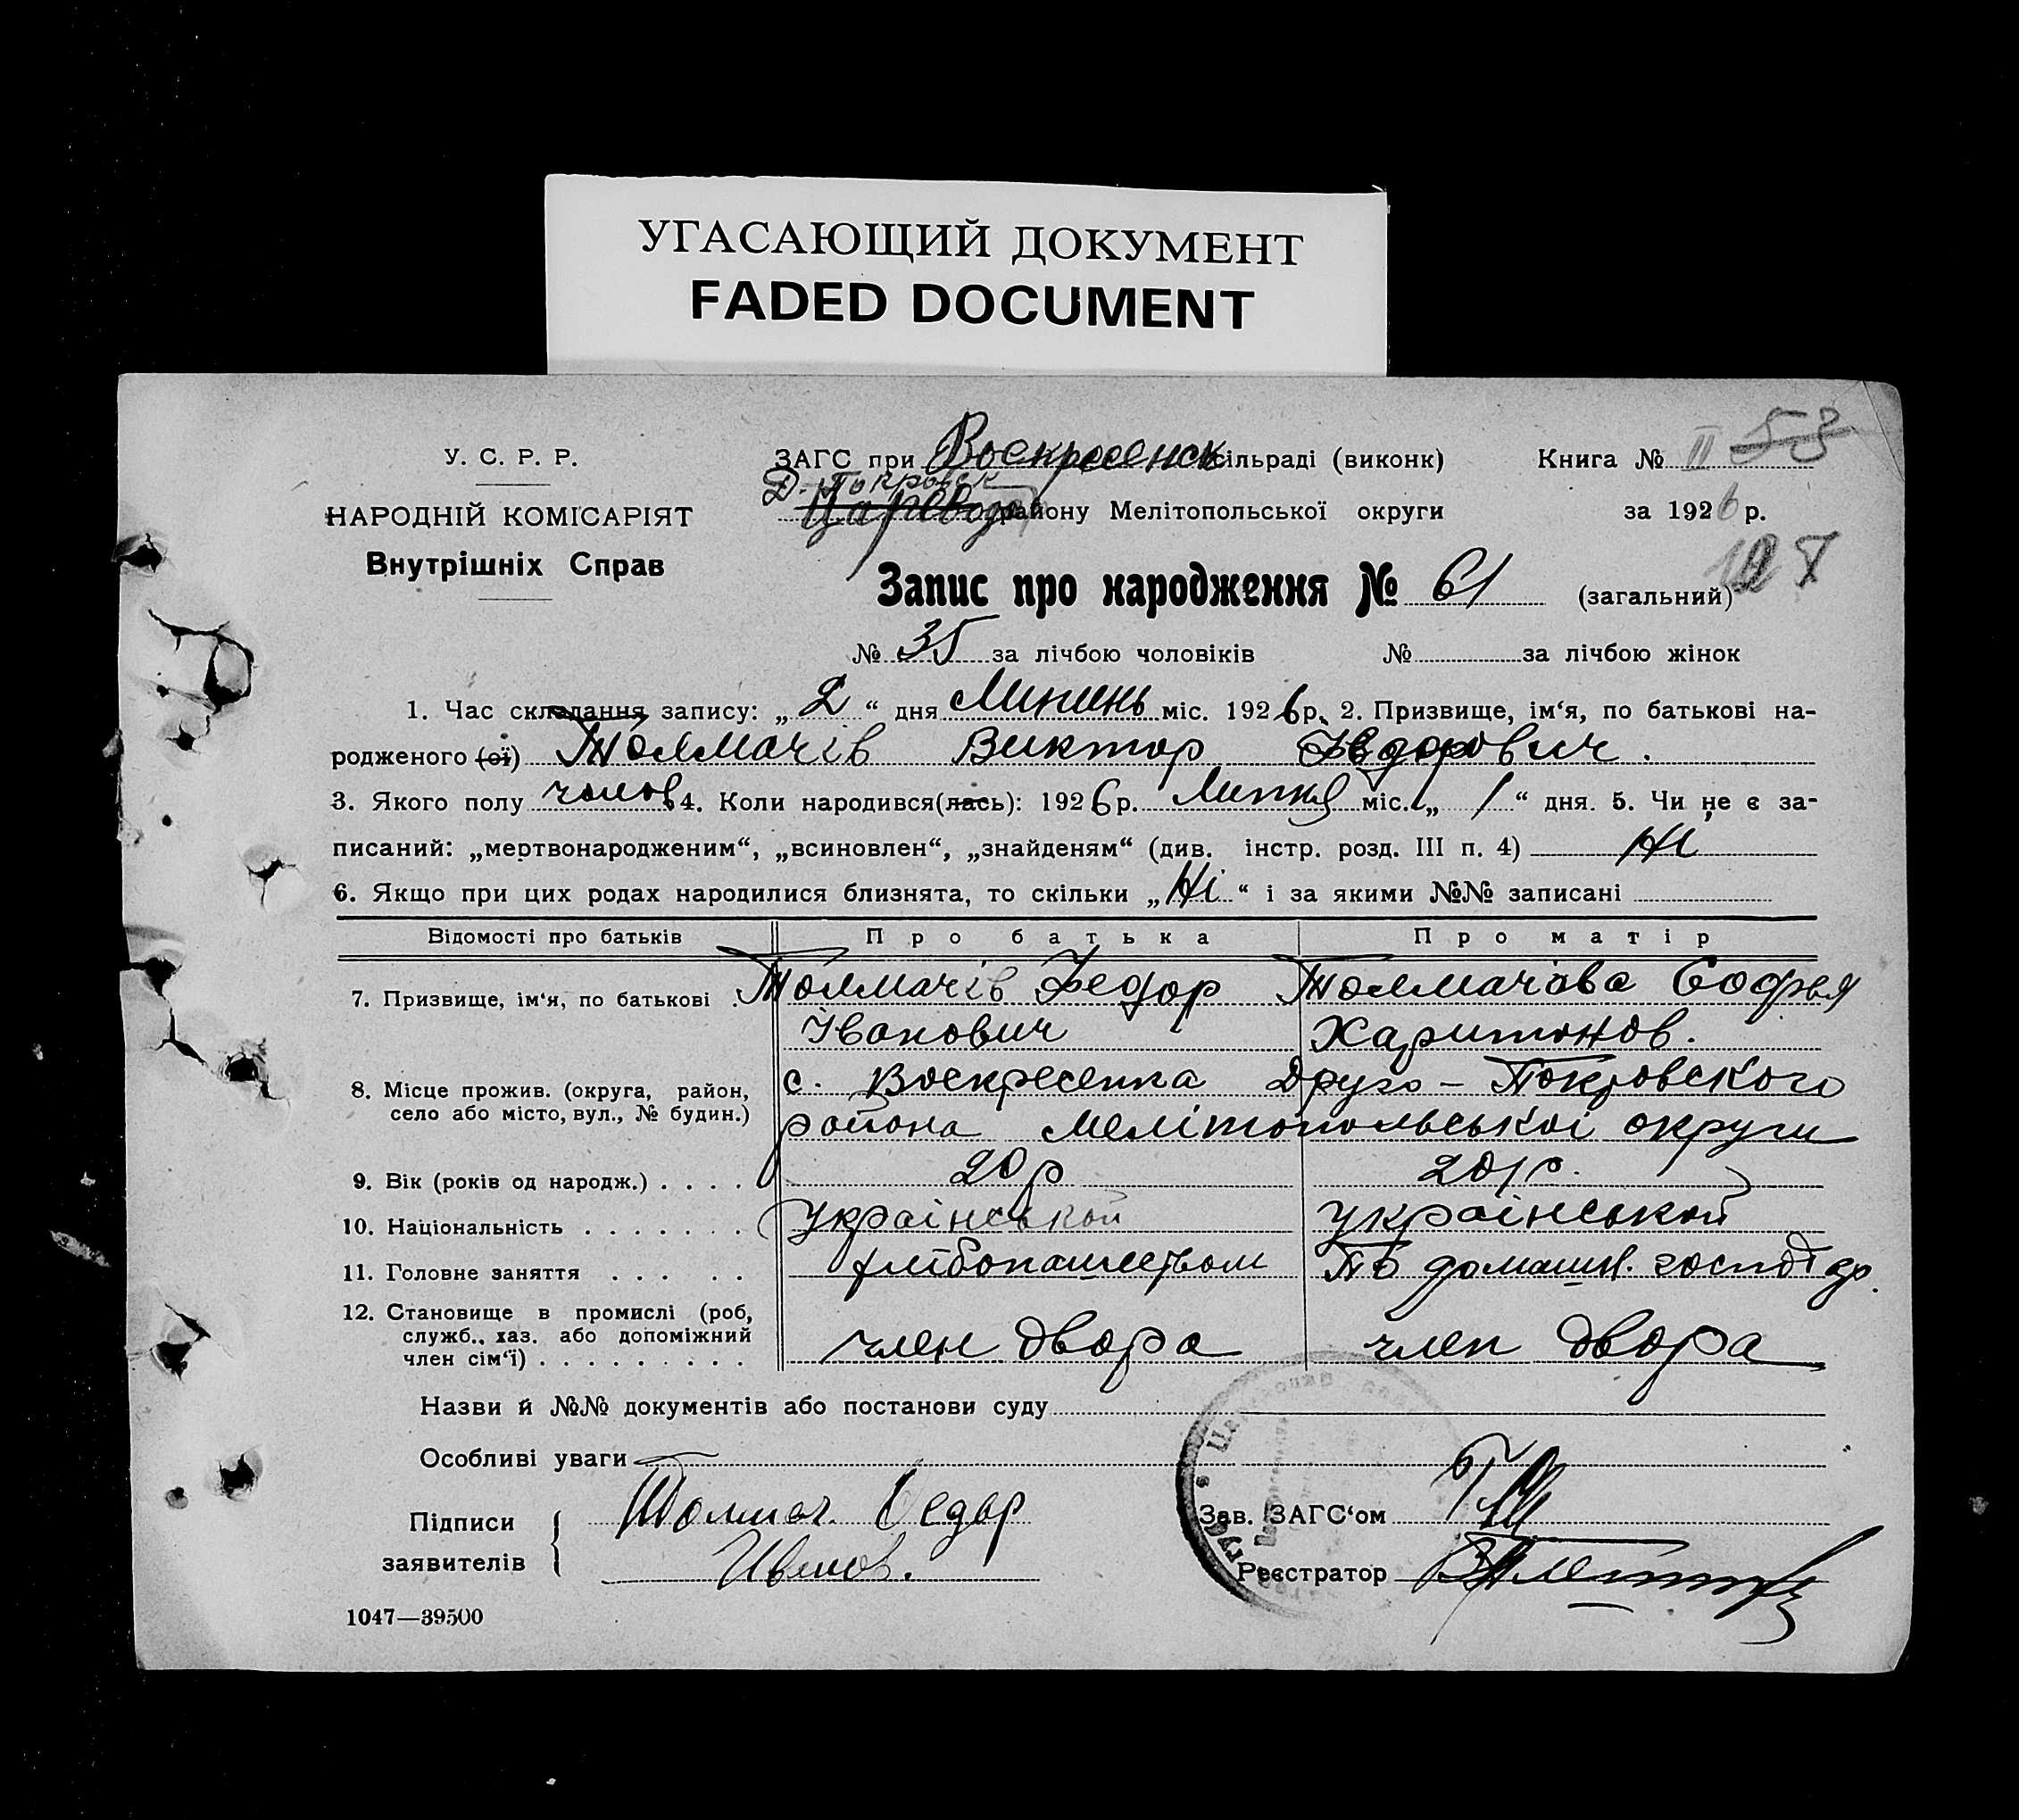 УГАСАЮЩИЙ ДОКУМЕНТ
FADED DOCUMENT
У. С. Р. Р.
НАРОДНІЙ КОМІСАРІЯТ
Внутрішніх Справ
ЗАГС при Воскресенск сільраді (виконк)
Д. Покровск
Царевод району Мелітопольської округи
Книга № II 53
за 1926 р.
Запис про народження № 61 (загальний)
№ 35 за лічбою чоловіків № за лічбою жінок
1. Час складання запису: „ 2 “ дня Липень міс. 1926 р. 2. Призвище, ім‘я, по батькові на-
родженого (ої) Толмачів Виктор Федорович.
3. Якого полу чолов 4. Коли народився(лась): 1926 р. Липня міс. „ 1 “ дня. 5. Чи не є за-
писаний: „мертвонародженим“, „всиновлен“, „знайденям“ (див. інстр. розд. III п. 4) Ні
6. Якщо при цих родах народилися близнята, то скільки „ Ні “ і за якими №№ записані
Відомості про батьків Про батька Про матір
7. Призвище, ім‘я, по батькові . Толмачів Федор Толмачова Софья
Іванович Харитонов.
8. Місце прожив. (округа, район, с. Воскресенка Друго-Покровского
село або місто, вул., № будин.) района Мелітопольської округи
9. Вік (років од народж.) . . . . 20 р 20 р.
10. Національність . . . . . . . український український
11. Головне заняття . . . . . хлібопашеством По домашн. господар.
12. Становище в промислі (роб, служб., хаз. або допоміжний член сім‘ї) . . . . . . . . . член двора член двора
Назви й №№ документів або постанови суду
Особливі уваги
Підписи заявителів Толмач. Федор
Иванов.
Зав. ЗАГС‘ом
Реєстратор
1047—39500